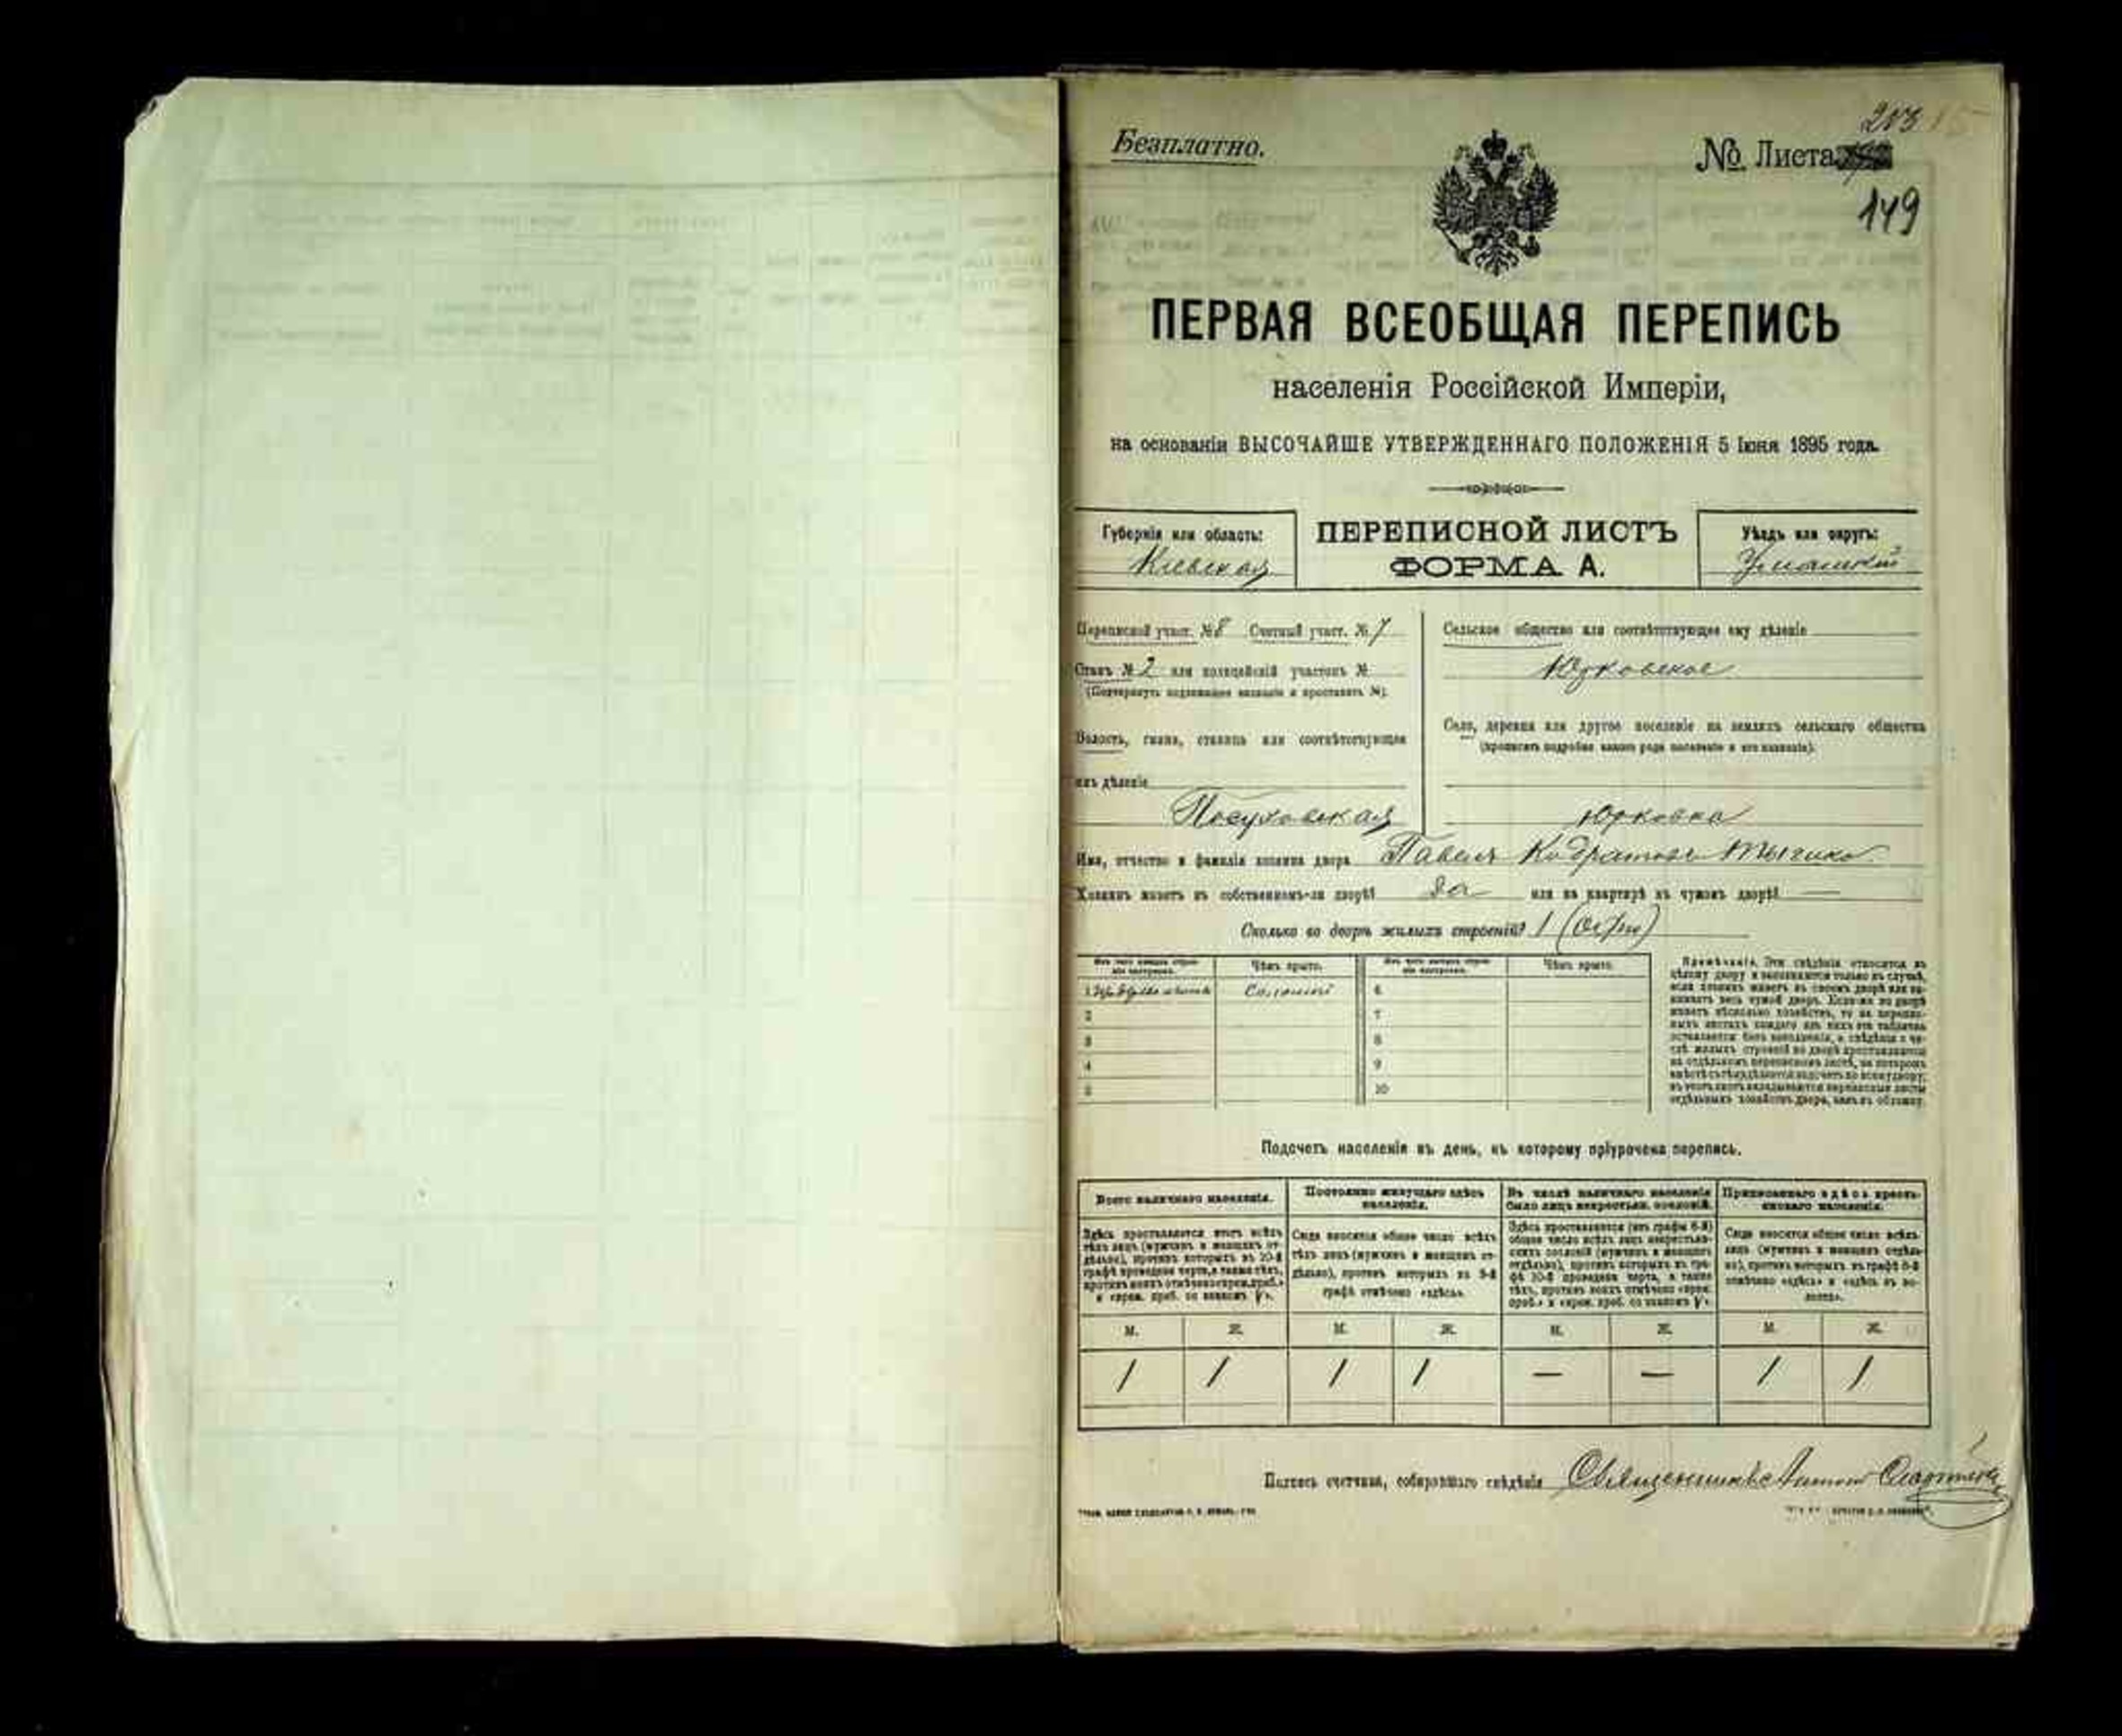 Безплатно.
203
№ Листа
149
ПЕРВАЯ ВСЕОБЩАЯ ПЕРЕПИСЬ
населенія Россійской Имперіи,
на основаніи ВЫСОЧАЙШЕ УТВЕРЖДЕННАГО ПОЛОЖЕНІЯ 5 Іюня 1895 года.
Губернія или область:
Кіевская
ПЕРЕПИСНОЙ ЛИСТЪ
ФОРМА А.
Уѣздъ или округъ:
Уманскій
Переписной участ. № 8 Счетный участ. № 7
Станъ № 2 или полицейскій участокъ №
(Подчеркнуть подлежащее названіе и проставить №).
Волость, гмина, станица или соотвѣтствующее
имъ дѣленіе
Посуховская
Сельское общество или соотвѣтствующее ему дѣленіе
Юрковское
Село, деревня или другое поселеніе на земляхъ сельскаго общества
(прописать подробно какого рода поселеніе и его названіе).
Юрковка
Имя, отчество и фамилія хозяина двора Павелъ
Хозяинъ живетъ въ собственномъ-ли дворѣ? да или на квартирѣ въ чужомъ дворѣ? —
Сколько во дворѣ жилыхъ строеній? 1
Изъ чего каждое строеніе построено. Чѣмъ крыто. Изъ чего каждое строеніе построено. Чѣмъ крыто.
1 Соломой 6
2 7
3 8
4 9
5 10
Примѣчаніе. Эти свѣдѣнія относятся къ
цѣлому двору и заполняются только въ случаѣ,
если хозяинъ живетъ въ своемъ дворѣ или за-
нимаетъ весь чужой дворъ. Если-же во дворѣ
живетъ нѣсколько хозяйствъ, то на перепис-
ныхъ листахъ каждаго изъ нихъ эта табличка
оставляется безъ заполненія, а свѣдѣнія о чи-
слѣ жилыхъ строеній во дворѣ проставляются
на отдѣльномъ переписномъ листѣ, на которомъ
вмѣстѣ съ тѣмъ дѣлается подсчетъ по всему двору;
въ этотъ листъ вкладываются переписные листы
отдѣльныхъ хозяйствъ двора, какъ въ обложку.
Подсчетъ населенія въ день, къ которому пріурочена перепись.
Всего наличнаго населенія.
Здѣсь проставляется итогъ всѣхъ
тѣхъ лицъ (мужчинъ и женщинъ от-
дѣльно), противъ которыхъ въ 10-й
графѣ проведена черта, а также тѣхъ,
противъ коихъ отмѣчено «врем. преб.»
и «врем. преб. со знакомъ V».
Постоянно живущаго здѣсь
населенія.
Сюда вносится общее число всѣхъ
тѣхъ лицъ (мужчинъ и женщинъ от-
дѣльно), противъ которыхъ въ 9-й
графѣ отмѣчено «здѣсь».
Въ числѣ наличнаго населенія
было лицъ некрестьян. сословій.
Здѣсь проставляется (изъ графы 6-й)
общее число всѣхъ лицъ некрестьян-
скихъ сословій (мужчинъ и женщинъ
отдѣльно), противъ которыхъ въ гра-
фѣ 10-й проведена черта, а также
тѣхъ, противъ коихъ отмѣчено «врем.
преб.» и «врем. преб. со знакомъ V».
Приписаннаго здѣсь кресть-
янскаго населенія.
Сюда вносится общее число всѣхъ
лицъ (мужчинъ и женщинъ отдѣль-
но), противъ которыхъ въ графѣ 8-й
отмѣчено «здѣсь» и «здѣсь въ во-
лости».
М. Ж. М. Ж. М. Ж. М. Ж.
1 1 1 1 — — 1 1
Подпись счетчика, собиравшаго свѣдѣнія Священникъ